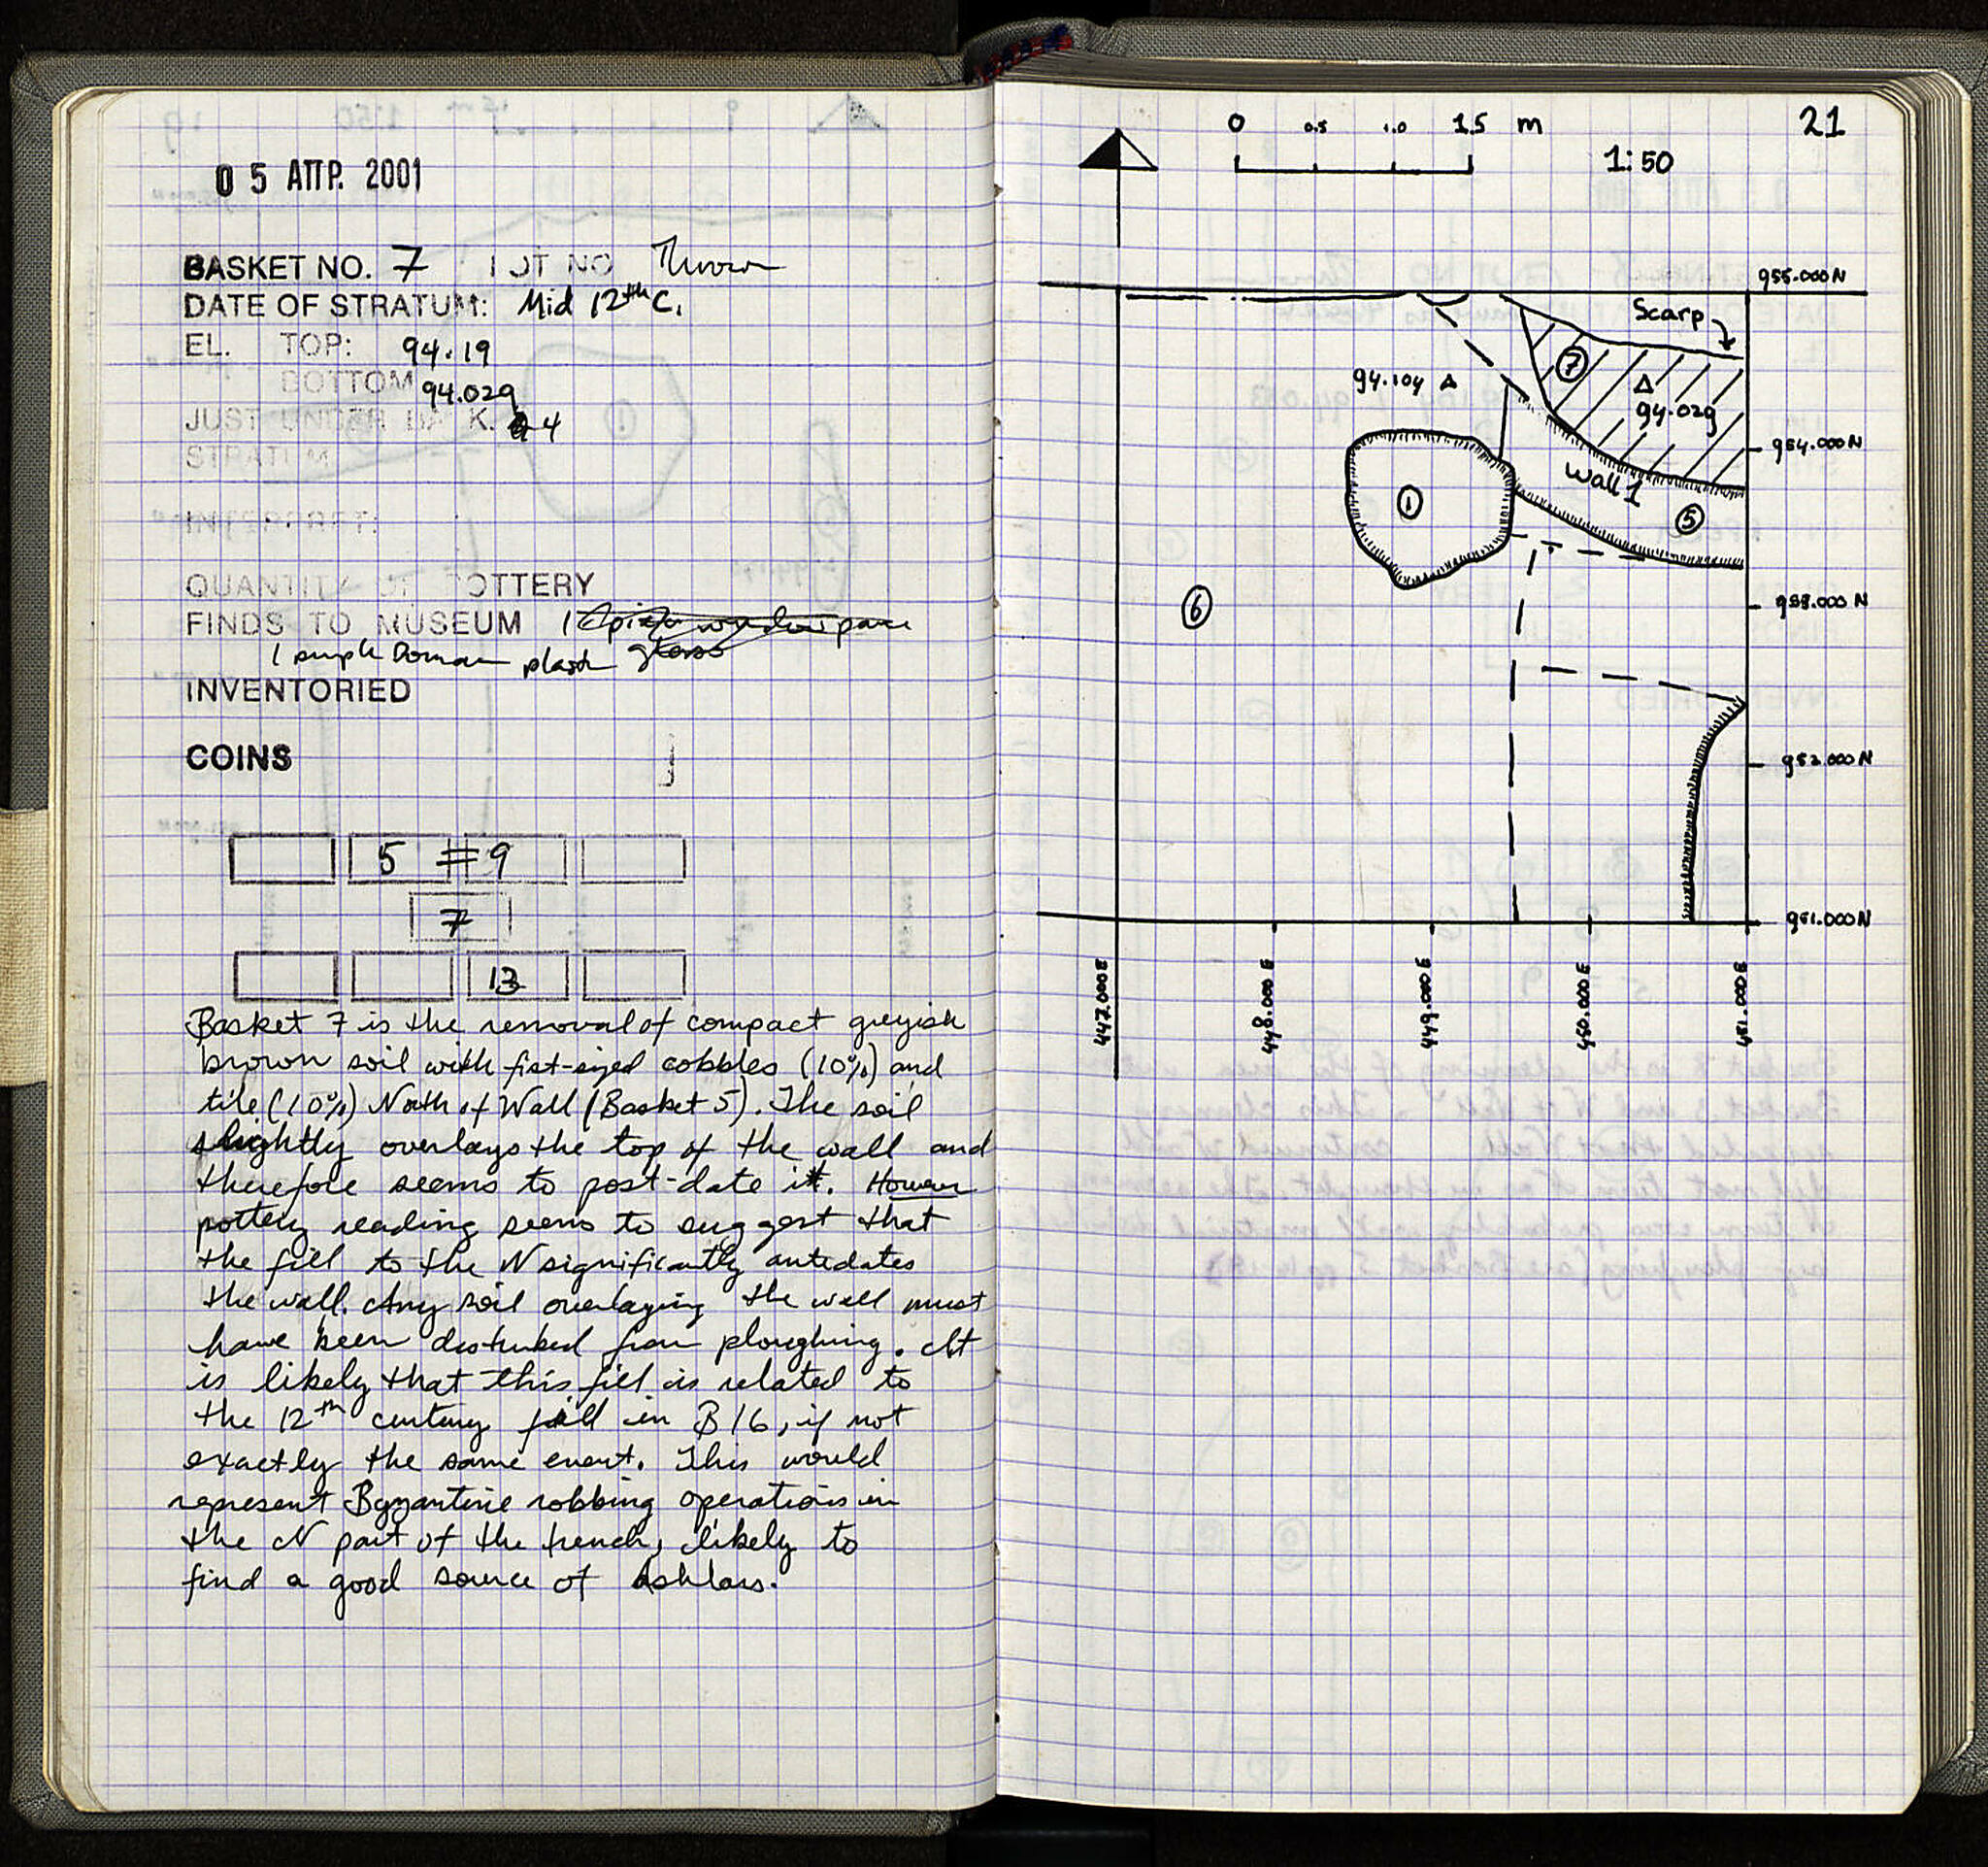 05 ΑΠΡ. 2001
BASKET NO. 7 LOT NO Thrown
DATE OF STRATUM: Mid 12th C.
EL. TOP: 94.19
BOTTOM 94.029
JUST UNDER BASK. 4
STRATUM
INTERPRET:
QUANTITY OF POTTERY
FINDS TO MUSEUM 1 window pane
1 purple Roman plash glass
INVENTORIED
COINS
5 = 9
7
13
Basket 7 is the removal of compact greyish
brown soil with fist-sized cobbles (10%) and
tile (10%) North of Wall (Basket 5). The soil
slightly overlays the top of the wall and
therefore seems to post-date it. However
pottery reading seems to suggest that
the fill to the N significantly antedates
the wall. Any soil overlaying the wall must
have been disturbed from ploughing. It
is likely that this fill is related to
the 12th century fill in B16, if not
exactly the same event. This would
represent Byzantine robbing operations in
the N part of the trench, likely to
find a good source of Ashlars.
21
0 0.5 1.0 1.5 m
1:50
955.000 N
Scarp
7
94.104
94.029
954.000 N
Wall 1
1
5
6
953.000 N
952.000 N
951.000 N
447.000 E
448.000 E
449.000 E
450.000 E
451.000 E